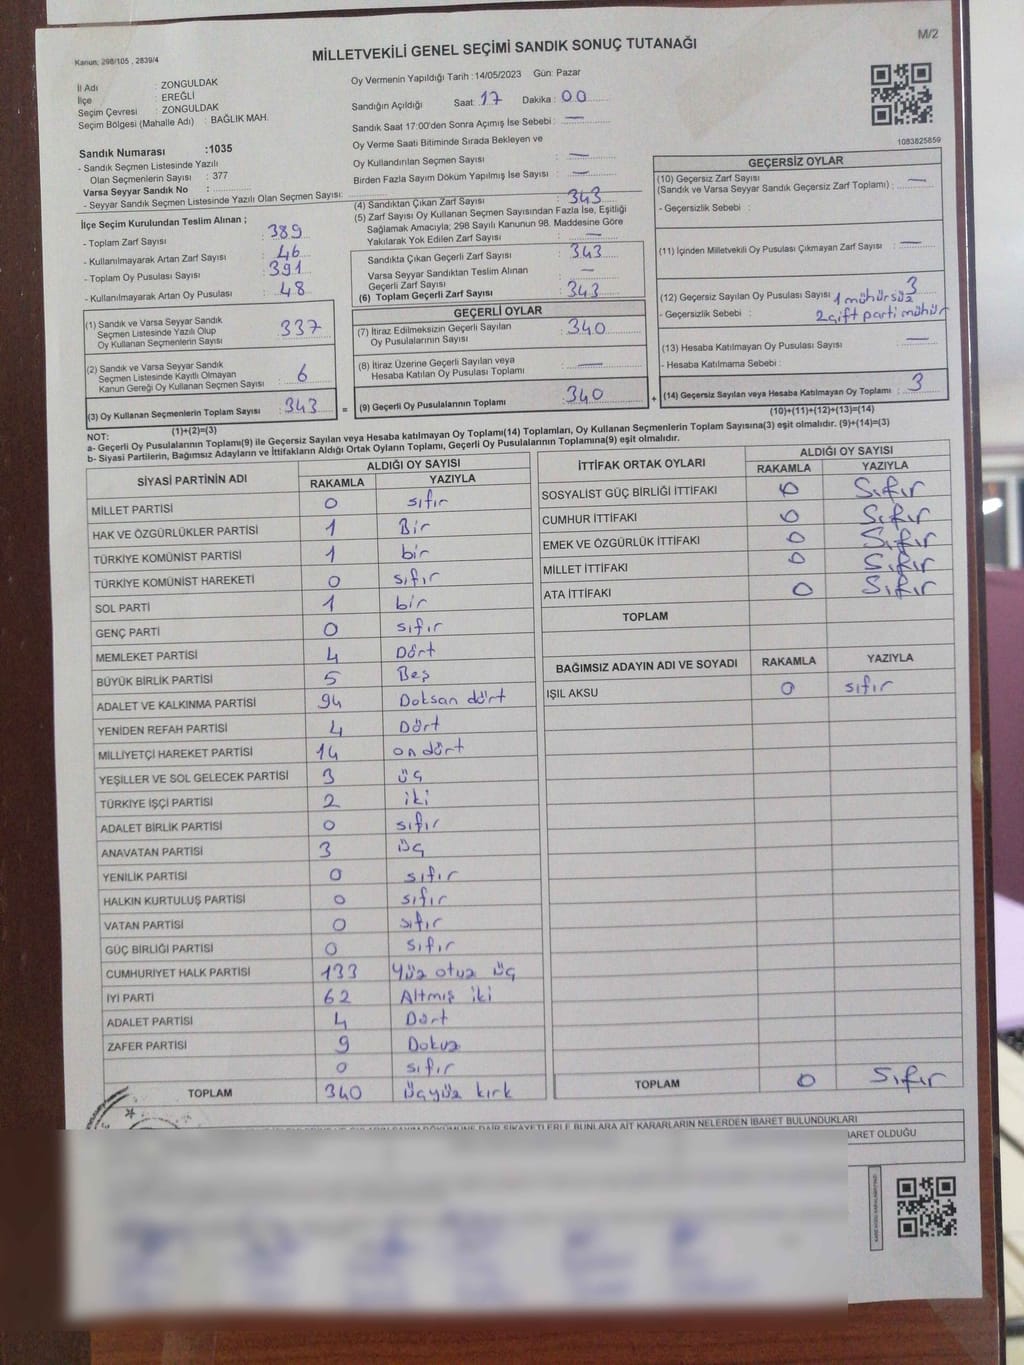 M/2
Kanun: 298/105 , 2839/4
MİLLETVEKİLİ GENEL SEÇİMİ SANDIK SONUÇ TUTANAĞI
İl Adı : ZONGULDAK
İlçe : EREĞLİ
Seçim Çevresi : ZONGULDAK
Seçim Bölgesi (Mahalle Adı) : BAĞLIK MAH.
Sandık Numarası :1035
- Sandık Seçmen Listesinde Yazılı
Olan Seçmenlerin Sayısı : 377
Varsa Seyyar Sandık No :
- Seyyar Sandık Seçmen Listesinde Yazılı Olan Seçmen Sayısı:
Oy Vermenin Yapıldığı Tarih : 14/05/2023 Gün: Pazar
Sandığın Açıldığı Saat : 17 Dakika : 00
Sandık Saat 17:00'den Sonra Açımış İse Sebebi : —
Oy Verme Saati Bitiminde Sırada Bekleyen ve
Oy Kullandırılan Seçmen Sayısı : —
Birden Fazla Sayım Döküm Yapılmış İse Sayısı : —
1083825859
İlçe Seçim Kurulundan Teslim Alınan ;
- Toplam Zarf Sayısı : 389
- Kullanılmayarak Artan Zarf Sayısı : 46
- Toplam Oy Pusulası Sayısı : 391
- Kullanılmayarak Artan Oy Pusulası : 48
(1) Sandık ve Varsa Seyyar Sandık
Seçmen Listesinde Yazılı Olup
Oy Kullanan Seçmenlerin Sayısı : 337
(2) Sandık ve Varsa Seyyar Sandık
Seçmen Listesinde Kayıtlı Olmayan
Kanun Gereği Oy Kullanan Seçmen Sayısı : 6
(3) Oy Kullanan Seçmenlerin Toplam Sayısı : 343
(1)+(2)=(3)
(4) Sandıktan Çıkan Zarf Sayısı : 343
(5) Zarf Sayısı Oy Kullanan Seçmen Sayısından Fazla İse, Eşitliği
Sağlamak Amacıyla; 298 Sayılı Kanunun 98. Maddesine Göre
Yakılarak Yok Edilen Zarf Sayısı : —
Sandıkta Çıkan Geçerli Zarf Sayısı : 343
Varsa Seyyar Sandıktan Teslim Alınan
Geçerli Zarf Sayısı : —
(6) Toplam Geçerli Zarf Sayısı : 343
GEÇERLİ OYLAR
(7) İtiraz Edilmeksizin Geçerli Sayılan
Oy Pusulalarının Sayısı : 340
(8) İtiraz Üzerine Geçerli Sayılan veya
Hesaba Katılan Oy Pusulası Toplamı : —
= (9) Geçerli Oy Pusulalarının Toplamı : 340
GEÇERSİZ OYLAR
(10) Geçersiz Zarf Sayısı
(Sandık ve Varsa Seyyar Sandık Geçersiz Zarf Toplamı) : —
- Geçersizlik Sebebi :
(11) İçinden Milletvekili Oy Pusulası Çıkmayan Zarf Sayısı : —
(12) Geçersiz Sayılan Oy Pusulası Sayısı : 3
1 mühürsüz
- Geçersizlik Sebebi : 2 çift parti mühür
(13) Hesaba Katılmayan Oy Pusulası Sayısı : —
- Hesaba Katılmama Sebebi :
+ (14) Geçersiz Sayılan veya Hesaba Katılmayan Oy Toplamı : 3
(10)+(11)+(12)+(13)=(14)
NOT:
a- Geçerli Oy Pusulalarının Toplamı(9) ile Geçersiz Sayılan veya Hesaba katılmayan Oy Toplamı(14) Toplamları, Oy Kullanan Seçmenlerin Toplam Sayısına(3) eşit olmalıdır. (9)+(14)=(3)
b- Siyasi Partilerin, Bağımsız Adayların ve İttifakların Aldığı Ortak Oyların Toplamı, Geçerli Oy Pusulalarının Toplamına(9) eşit olmalıdır.
SİYASİ PARTİNİN ADI ALDIĞI OY SAYISI
RAKAMLA YAZIYLA
MİLLET PARTİSİ 0 sıfır
HAK VE ÖZGÜRLÜKLER PARTİSİ 1 Bir
TÜRKİYE KOMÜNİST PARTİSİ 1 bir
TÜRKİYE KOMÜNİST HAREKETİ 0 sıfır
SOL PARTİ 1 bir
GENÇ PARTİ 0 sıfır
MEMLEKET PARTİSİ 4 Dört
BÜYÜK BİRLİK PARTİSİ 5 Beş
ADALET VE KALKINMA PARTİSİ 94 Doksan dört
YENİDEN REFAH PARTİSİ 4 Dört
MİLLİYETÇİ HAREKET PARTİSİ 14 on dört
YEŞİLLER VE SOL GELECEK PARTİSİ 3 üç
TÜRKİYE İŞÇİ PARTİSİ 2 iki
ADALET BİRLİK PARTİSİ 0 sıfır
ANAVATAN PARTİSİ 3 üç
YENİLİK PARTİSİ 0 sıfır
HALKIN KURTULUŞ PARTİSİ 0 sıfır
VATAN PARTİSİ 0 sıfır
GÜÇ BİRLİĞİ PARTİSİ 0 sıfır
CUMHURİYET HALK PARTİSİ 133 Yüz otuz üç
İYİ PARTİ 62 Altmış iki
ADALET PARTİSİ 4 Dört
ZAFER PARTİSİ 9 Dokuz
0 sıfır
TOPLAM 340 üçyüz kırk
İTTİFAK ORTAK OYLARI ALDIĞI OY SAYISI
RAKAMLA YAZIYLA
SOSYALİST GÜÇ BİRLİĞİ İTTİFAKI 0 Sıfır
CUMHUR İTTİFAKI 0 Sıfır
EMEK VE ÖZGÜRLÜK İTTİFAKI 0 Sıfır
MİLLET İTTİFAKI 0 Sıfır
ATA İTTİFAKI 0 Sıfır
TOPLAM
BAĞIMSIZ ADAYIN ADI VE SOYADI RAKAMLA YAZIYLA
IŞIL AKSU 0 sıfır
TOPLAM 0 Sıfır
ŞİKAYETLERLE BUNLARA AİT KARARLARIN NELERDEN İBARET BULUNDUKLARI
İBARET OLDUĞU